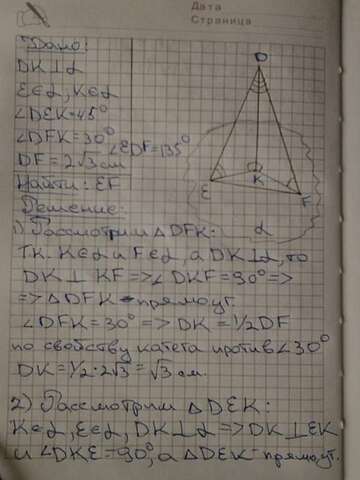 Дата
Страница
Дано:
DK⊥α
E∈α, K∈α
∠DEK=45°
∠DFK=30° ∠EDF=135°
DF=2√3 см
Найти: EF
Решение:
D
E
K
F
α
1) Рассмотрим △DFK:
т.к. K∈α и F∈α, а DK⊥α, то
DK⊥KF => ∠DKF=90° =>
=> △DFK - прямоуг.
∠DFK=30° => DK=1/2DF
по свойству катета против ∠30°
DK=1/2·2√3=√3 см.
2) Рассмотрим △DEK:
K∈α, E∈α, DK⊥α => DK⊥EK
и ∠DKE=90°, а △DEK - прямоуг.